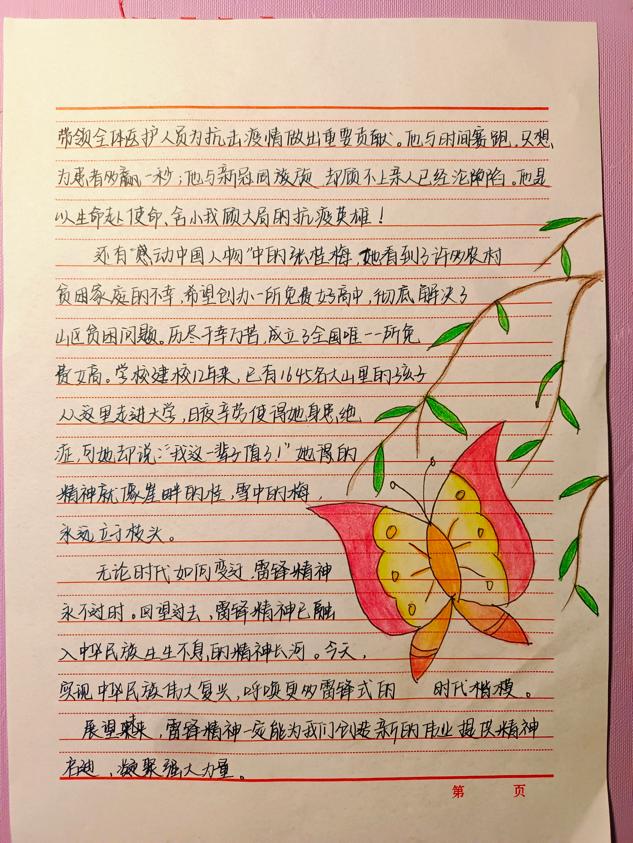 带领全体医护人员为抗击疫情做出重要贡献。他与时间赛跑，只想
为患者多赢一秒；他与新冠周旋，却顾不上亲人已经沦陷。他是
以生命赴使命、舍小我顾大局的抗疫英雄！
还有“感动中国人物”中的张桂梅，她看到了许多农村
贫困家庭的不幸，希望创办一所免费女高中，彻底解决了
山区贫困问题。历尽千辛万苦，成立了全国唯一一所免
费女高。学校建校12年来，已有1645名大山里的孩子
从这里走进大学，日夜辛劳使得她身患绝
症，可她却说：“我这一辈子值了！”她的
精神就像崖畔的桂，雪中的梅，
永远立于枝头。
无论时代如何变迁，雷锋精神
永不过时。回望过去，雷锋精神已融
入中华民族生生不息的精神长河。今天，
实现中华民族伟大复兴，呼唤更多雷锋式的 时代楷模。
展望未来，雷锋精神一定能为我们创造新的伟业提供精神
，凝聚强大力量。
第 页